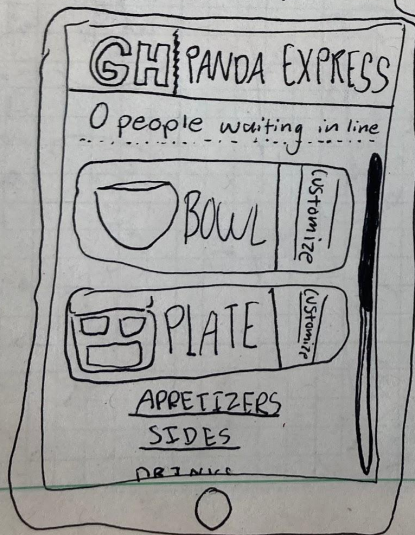 GH PANDA EXPRESS
0 people waiting in line
BOWL Customize
PLATE Customize
APPETIZERS
SIDES
DRINKS